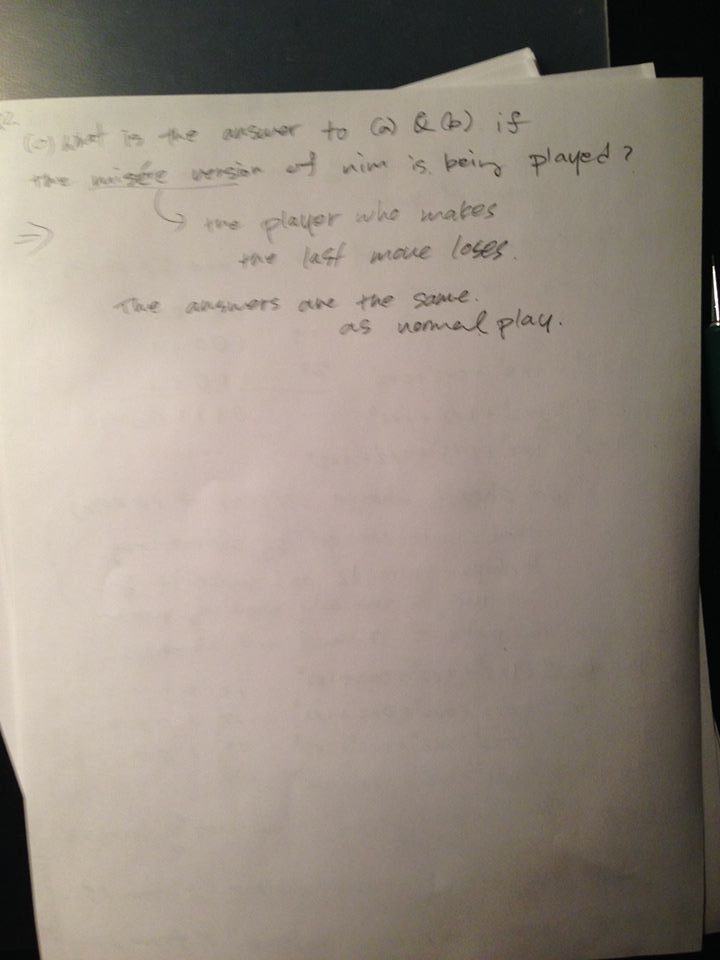 (c) What is the answer to (a) & (b) if
the misére version of nim is being played?
⇒ the player who makes
the last move loses.
The answers are the same.
as normal play.